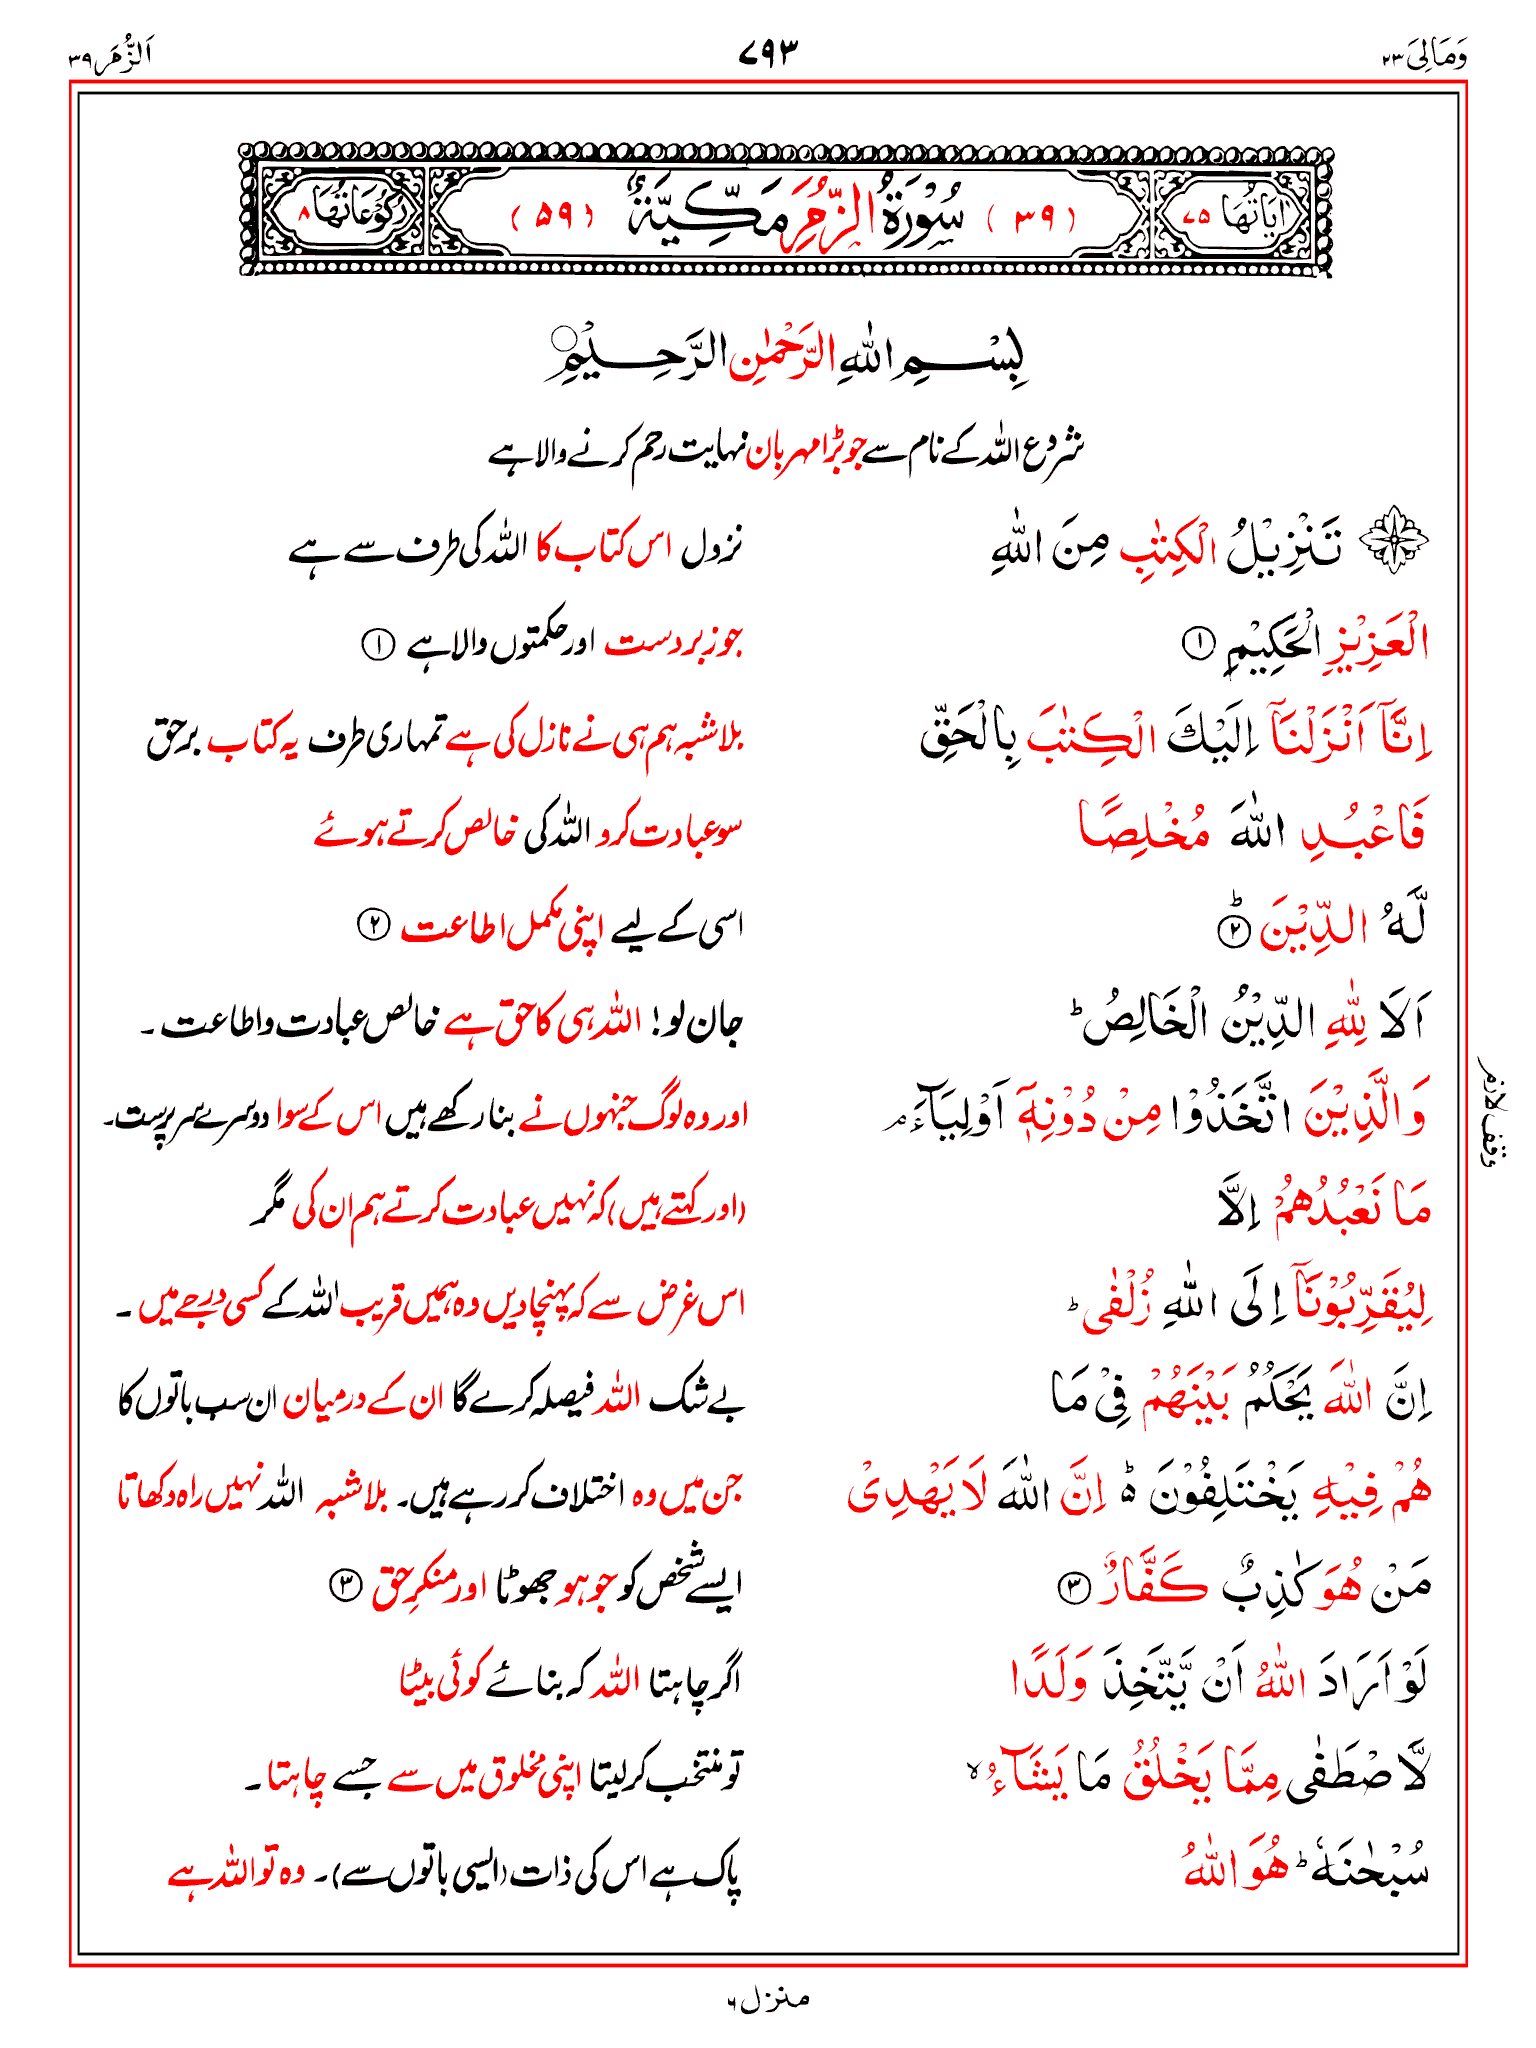 وَمَالِیَ ۲۳
۷۹۳
اَلزُّمَر ۳۹
اٰیَاتُهَا ۷۵
(۳۹) سُوْرَةُ الزُّمَرِ مَكِّيَّةٌ (۵۹)
رُكُوْعَاتُهَا ۸
بِسْمِ اللّٰهِ الرَّحْمٰنِ الرَّحِيْمِ ○
شروع اللہ کے نام سے جو بڑا مہربان نہایت رحم کرنے والا ہے
تَنْزِيْلُ الْكِتٰبِ مِنَ اللّٰهِ نزول اس کتاب کا اللہ کی طرف سے ہے
الْعَزِيْزِ الْحَكِيْمِ ① جو زبردست اور حکمتوں والا ہے ①
اِنَّآ اَنْزَلْنَآ اِلَيْكَ الْكِتٰبَ بِالْحَقِّ بلاشبہ ہم ہی نے نازل کی ہے تمہاری طرف یہ کتاب برحق
فَاعْبُدِ اللّٰهَ مُخْلِصًا سو عبادت کرو اللہ کی خالص کرتے ہوئے
لَّهُ الدِّيْنَ ؕ② اسی کے لیے اپنی مکمل اطاعت ②
اَلَا لِلّٰهِ الدِّيْنُ الْخَالِصُ ؕ جان لو! اللہ ہی کا حق ہے خالص عبادت و اطاعت ۔
وَالَّذِيْنَ اتَّخَذُوْا مِنْ دُوْنِهٖٓ اَوْلِيَآءَ ۘ اور وہ لوگ جنہوں نے بنا رکھے ہیں اس کے سوا دوسرے سرپرست۔
وقف لازم
مَا نَعْبُدُهُمْ اِلَّا (اور کہتے ہیں) کہ نہیں عبادت کرتے ہم ان کی مگر
لِيُقَرِّبُوْنَآ اِلَى اللّٰهِ زُلْفٰى ؕ اس غرض سے کہ پہنچادیں وہ ہمیں قریب اللہ کے کسی درجے میں ۔
اِنَّ اللّٰهَ يَحْكُمُ بَيْنَهُمْ فِيْ مَا بے شک اللہ فیصلہ کرے گا ان کے درمیان ان سب باتوں کا
هُمْ فِيْهِ يَخْتَلِفُوْنَ ؕ۬ اِنَّ اللّٰهَ لَا يَهْدِيْ جن میں وہ اختلاف کر رہے ہیں۔ بلاشبہ اللہ نہیں راہ دکھاتا
مَنْ هُوَ كٰذِبٌ كَفَّارٌ ③ ایسے شخص کو جو ہو جھوٹا اور منکرِ حق ③
لَوْ اَرَادَ اللّٰهُ اَنْ يَّتَّخِذَ وَلَدًا اگر چاہتا اللہ کہ بنائے کوئی بیٹا
لَّاصْطَفٰى مِمَّا يَخْلُقُ مَا يَشَآءُ ۙ تو منتخب کر لیتا اپنی مخلوق میں سے جسے چاہتا ۔
سُبْحٰنَهٗ ؕ هُوَ اللّٰهُ پاک ہے اس کی ذات (ایسی باتوں سے) ۔ وہ تو اللہ ہے
منزل ۶